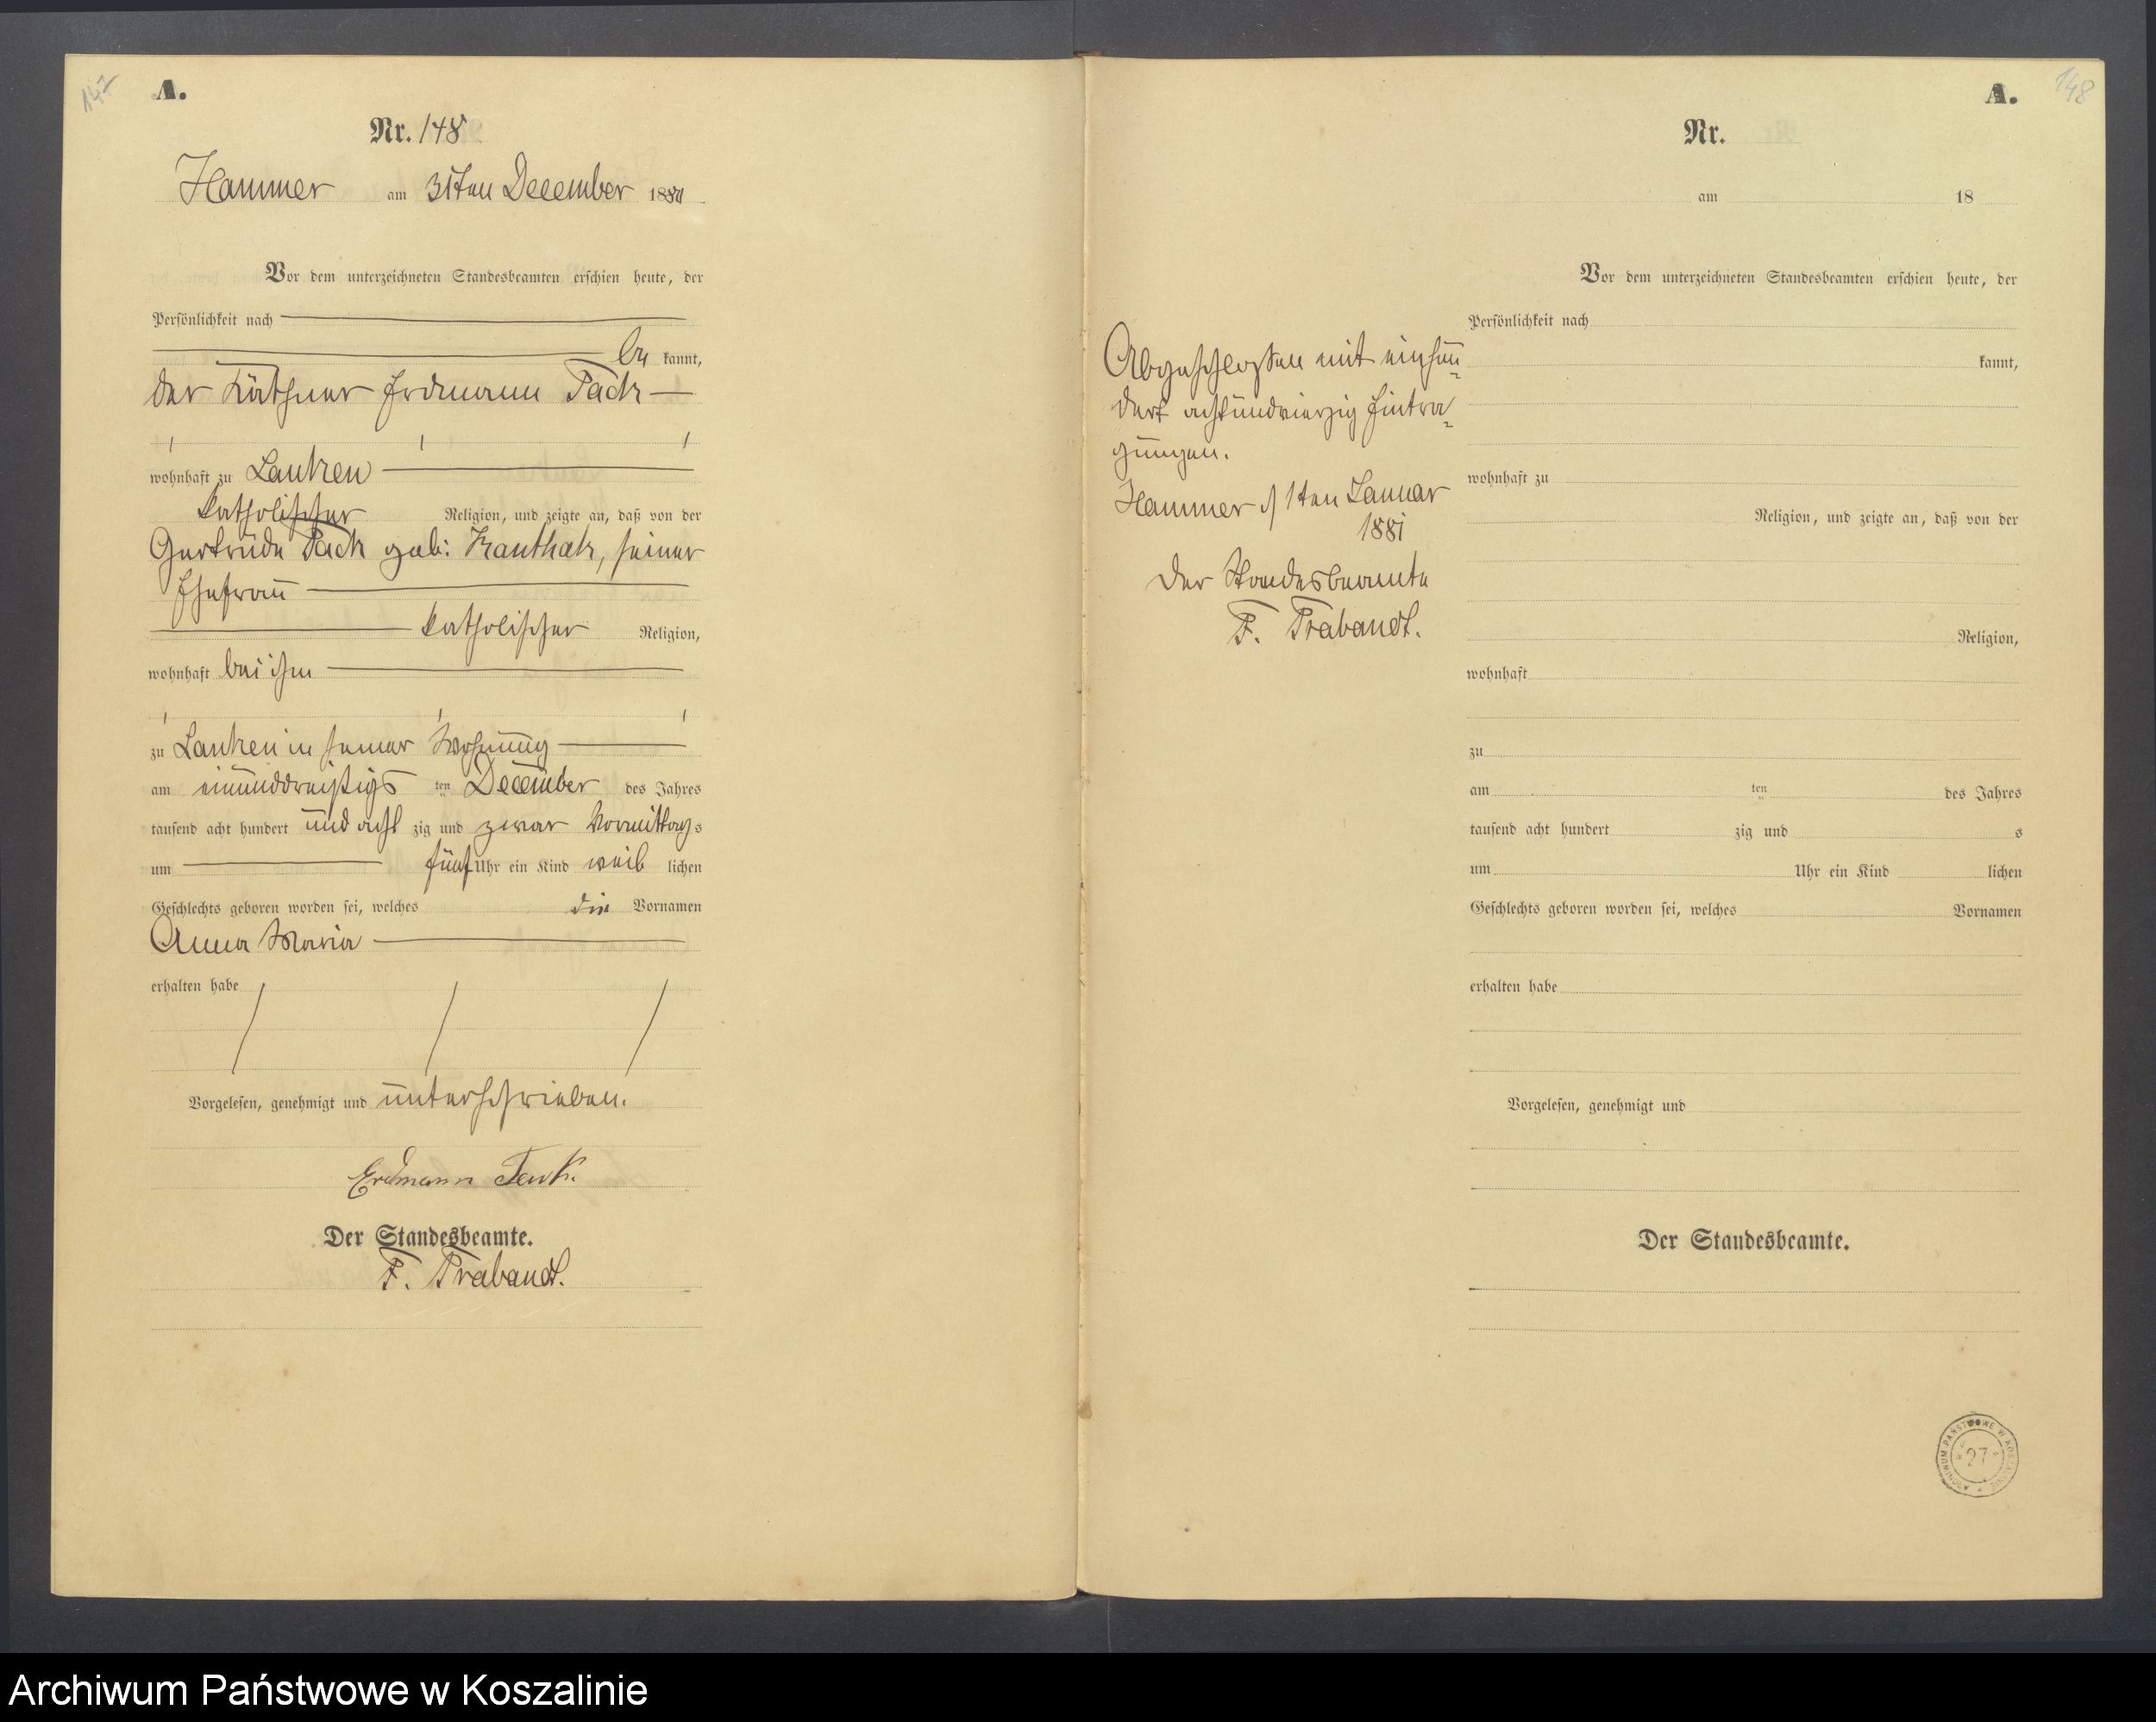 147
A.
Nr. 148
Hammer am 31ten December 1880
Vor dem unterzeichneten Standesbeamten erschien heute, der
Persönlichkeit nach
be kannt,
der Käthner Erdmann
wohnhaft zu Lanken
katholischer Religion, und zeigte an, daß von der
Gertrude geb: seiner
Ehefrau
katholischer Religion,
wohnhaft bei ihm
zu Lanken in seiner Wohnung
am einunddreißigs ten December des Jahres
tausend acht hundert und acht zig und zwar Vormittags
um fünf Uhr ein Kind weib lichen
Geschlechts geboren worden sei, welches die Vornamen
Anna Maria
erhalten habe
Vorgelesen, genehmigt und unterschrieben.
Erdmann
Der Standesbeamte.
F. Trabandt.
148
A.
Nr.
am 18
Vor dem unterzeichneten Standesbeamten erschien heute, der
Persönlichkeit nach
kannt,
wohnhaft zu
Religion, und zeigte an, daß von der
Religion,
wohnhaft
zu
am ten des Jahres
tausend acht hundert zig und s
um Uhr ein Kind lichen
Geschlechts geboren worden sei, welches Vornamen
erhalten habe
Vorgelesen, genehmigt und
Der Standesbeamte.
Abgeschlossen mit einhun
dert achtundvierzig Eintra
gungen.
Hammer d 1ten Januar
1881
Der Standesbeamte
F. Trabandt.
ARCHIWUM PAŃSTWOWE W KOSZALINIE
27
Archiwum Państwowe w Koszalinie